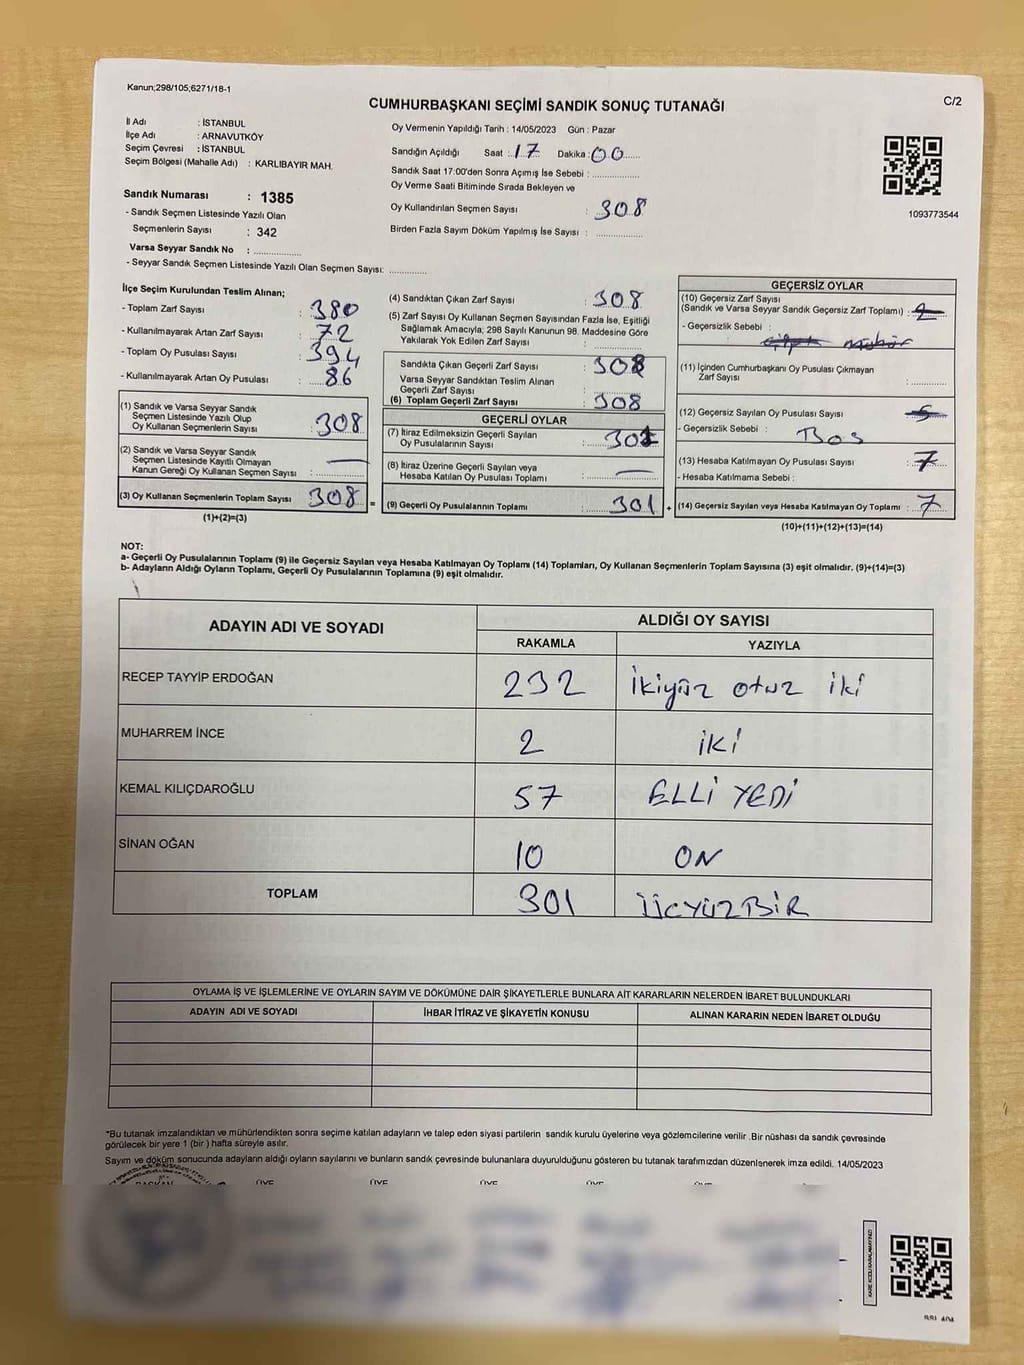 Kanun;298/105;6271/18-1
C/2
CUMHURBAŞKANI SEÇİMİ SANDIK SONUÇ TUTANAĞI
İl Adı : İSTANBUL
İlçe Adı : ARNAVUTKÖY
Seçim Çevresi : İSTANBUL
Seçim Bölgesi (Mahalle Adı) : KARLIBAYIR MAH.
Sandık Numarası : 1385
- Sandık Seçmen Listesinde Yazılı Olan
Seçmenlerin Sayısı : 342
Varsa Seyyar Sandık No : ..............
- Seyyar Sandık Seçmen Listesinde Yazılı Olan Seçmen Sayısı: ............
Oy Vermenin Yapıldığı Tarih : 14/05/2023 Gün : Pazar
Sandığın Açıldığı Saat : 17 Dakika : 00
Sandık Saat 17:00'den Sonra Açımış İse Sebebi : ..............
Oy Verme Saati Bitiminde Sırada Bekleyen ve
Oy Kullandırılan Seçmen Sayısı : 308
Birden Fazla Sayım Döküm Yapılmış İse Sayısı : ..............
1093773544
İlçe Seçim Kurulundan Teslim Alınan;
- Toplam Zarf Sayısı : 380
- Kullanılmayarak Artan Zarf Sayısı : 72
- Toplam Oy Pusulası Sayısı : 394
- Kullanılmayarak Artan Oy Pusulası : 86
(1) Sandık ve Varsa Seyyar Sandık
Seçmen Listesinde Yazılı Olup
Oy Kullanan Seçmenlerin Sayısı : 308
(2) Sandık ve Varsa Seyyar Sandık
Seçmen Listesinde Kayıtlı Olmayan
Kanun Gereği Oy Kullanan Seçmen Sayısı : —
(3) Oy Kullanan Seçmenlerin Toplam Sayısı 308 =
(1)+(2)=(3)
(4) Sandıktan Çıkan Zarf Sayısı : 308
(5) Zarf Sayısı Oy Kullanan Seçmen Sayısından Fazla İse, Eşitliği
Sağlamak Amacıyla; 298 Sayılı Kanunun 98. Maddesine Göre
Yakılarak Yok Edilen Zarf Sayısı : ..............
Sandıkta Çıkan Geçerli Zarf Sayısı : 308
Varsa Seyyar Sandıktan Teslim Alınan
Geçerli Zarf Sayısı : ..............
(6) Toplam Geçerli Zarf Sayısı : 308
GEÇERLİ OYLAR
(7) İtiraz Edilmeksizin Geçerli Sayılan
Oy Pusulalarının Sayısı : 301
(8) İtiraz Üzerine Geçerli Sayılan veya
Hesaba Katılan Oy Pusulası Toplamı : —
(9) Geçerli Oy Pusulalarının Toplamı : 301 +
GEÇERSİZ OYLAR
(10) Geçersiz Zarf Sayısı
(Sandık ve Seyyar Sandık Geçersiz Zarf Toplamı) : 2
- Geçersizlik Sebebi :
mühür
(11) İçinden Cumhurbaşkanı Oy Pusulası Çıkmayan
Zarf Sayısı : ..............
(12) Geçersiz Sayılan Oy Pusulası Sayısı : 5
- Geçersizlik Sebebi : Boş
(13) Hesaba Katılmayan Oy Pusulası Sayısı : 7
- Hesaba Katılmama Sebebi :
(14) Geçersiz Sayılan veya Hesaba Katılmayan Oy Toplamı : 7
(10)+(11)+(12)+(13)=(14)
NOT:
a- Geçerli Oy Pusulalarının Toplamı (9) ile Geçersiz Sayılan veya Hesaba Katılmayan Oy Toplamı (14) Toplamları, Oy Kullanan Seçmenlerin Toplam Sayısına (3) eşit olmalıdır. (9)+(14)=(3)
b- Adayların Aldığı Oyların Toplamı, Geçerli Oy Pusulalarının Toplamına (9) eşit olmalıdır.
ADAYIN ADI VE SOYADI
ALDIĞI OY SAYISI
RAKAMLA YAZIYLA
RECEP TAYYİP ERDOĞAN 232 İkiyüz otuz iki
MUHARREM İNCE 2 İKİ
KEMAL KILIÇDAROĞLU 57 ELLİ YEDİ
SİNAN OĞAN 10 ON
TOPLAM 301 ÜÇYÜZBİR
OYLAMA İŞ VE İŞLEMLERİNE VE OYLARIN SAYIM VE DÖKÜMÜNE DAİR ŞİKAYETLERLE BUNLARA AİT KARARLARIN NELERDEN İBARET BULUNDUKLARI
ADAYIN ADI VE SOYADI İHBAR İTİRAZ VE ŞİKAYETİN KONUSU ALINAN KARARIN NEDEN İBARET OLDUĞU
*Bu tutanak imzalandıktan ve mühürlendikten sonra seçime katılan adayların ve talep eden siyasi partilerin sandık kurulu üyelerine veya gözlemcilerine verilir .Bir nüshası da sandık çevresinde
görülecek bir yere 1 (bir) hafta süreyle asılır.
Sayım ve döküm sonucunda adayların aldığı oyların sayılarını ve bunların sandık çevresinde bulunanlara duyurulduğunu gösteren bu tutanak tarafımızdan düzenlenerek imza edildi. 14/05/2023
BAŞKAN ÜYE ÜYE ÜYE ÜYE ÜYE
KARE KODU KARALAMAYINIZ!